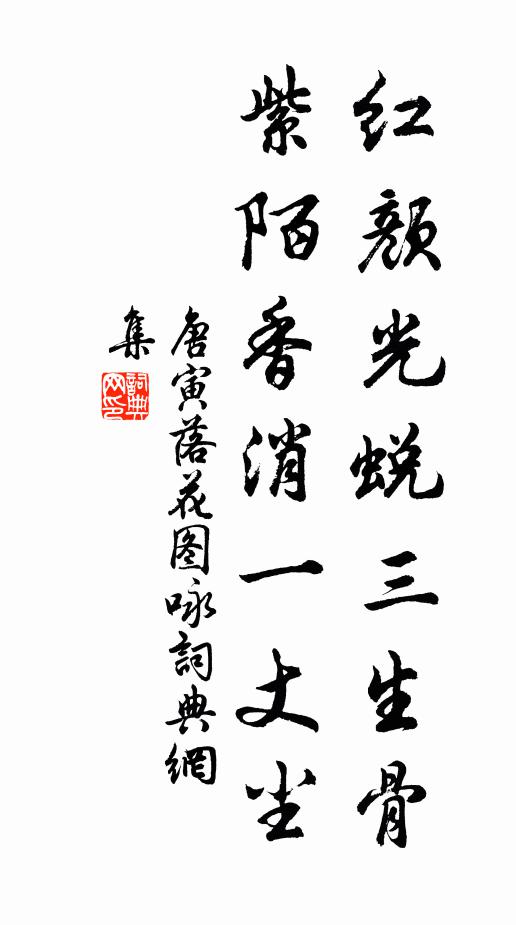 红颜光蜕三生骨
紫陌香消一丈尘
唐寅落花图咏詞典網
集
詞典
网印